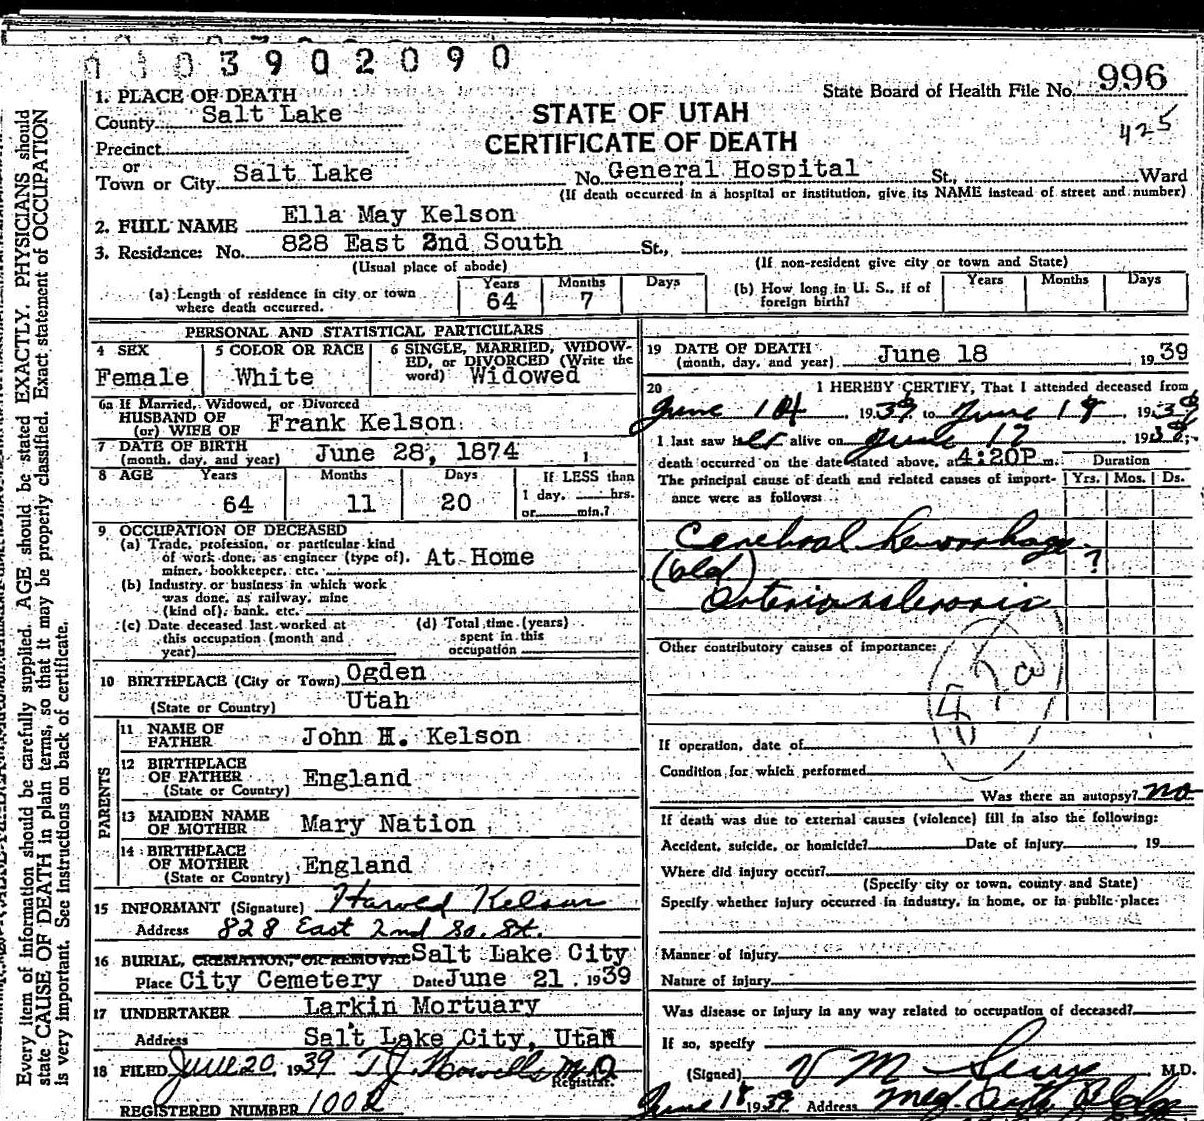 3902090
State Board of Health File No. 996
425
STATE OF UTAH
CERTIFICATE OF DEATH
1. PLACE OF DEATH
County Salt Lake
Precinct
or
Town or City Salt Lake No. General Hospital St., Ward
(If death occurred in a hospital or institution, give its NAME instead of street and number)
2. FULL NAME Ella May Kelson
3. Residence: No. 828 East 2nd South St.,
(Usual place of abode) (If non-resident give city or town and State)
(a) Length of residence in city or town where death occurred. Years 64 Months 7 Days
(b) How long in U. S., if of foreign birth? Years Months Days
PERSONAL AND STATISTICAL PARTICULARS
4 SEX Female
5 COLOR OR RACE White
6 SINGLE, MARRIED, WIDOWED, or DIVORCED (Write the word) Widowed
6a If Married, Widowed, or Divorced
HUSBAND OF
(or) WIFE OF Frank Kelson
7 DATE OF BIRTH
(month, day, and year) June 28, 1874
8 AGE Years 64 Months 11 Days 20 If LESS than 1 day, hrs. or min.?
9 OCCUPATION OF DECEASED
(a) Trade, profession, or particular kind
of work done, as engineer (type of), At Home
miner, bookkeeper, etc.
(b) Industry or business in which work
was done, as railway, mine
(kind of), bank, etc.
(c) Date deceased last worked at this occupation (month and year)
(d) Total time (years) spent in this occupation
10 BIRTHPLACE (City or Town) Ogden
(State or Country) Utah
PARENTS
11 NAME OF FATHER John H. Kelson
12 BIRTHPLACE OF FATHER England
(State or Country)
13 MAIDEN NAME OF MOTHER Mary Nation
14 BIRTHPLACE OF MOTHER England
(State or Country)
15 INFORMANT (Signature) Harold Kelson
Address 828 East 2nd So. St.
16 BURIAL, CREMATION, OR REMOVAL Salt Lake City
Place City Cemetery Date June 21, 1939
17 UNDERTAKER Larkin Mortuary
Address Salt Lake City, Utah
18 FILED June 20, 1939 T.J. Howells M.D.
Registrar.
REGISTERED NUMBER 1002
19 DATE OF DEATH
(month, day, and year) June 18 1939
20 I HEREBY CERTIFY, That I attended deceased from
June 14, 1939 to June 18, 1939
I last saw her alive on June 17 1939;
death occurred on the date stated above, at 4:20P m.
Duration
The principal cause of death and related causes of importance were as follows: Yrs. Mos. Ds.
Cerebral hemorrhage
(old) ?
Arteriosclerosis
Other contributory causes of importance:
If operation, date of
Condition for which performed
Was there an autopsy? no
If death was due to external causes (violence) fill in also the following:
Accident, suicide, or homicide? Date of injury , 19
Where did injury occur?
(Specify city or town, county and State)
Specify whether injury occurred in industry, in home, or in public place:
Manner of injury
Nature of injury
Was disease or injury in any way related to occupation of deceased?
If so, specify
(Signed) V M M.D.
June 18 1939 Address Med. Arts Bldg
Every item of information should be carefully supplied. AGE should be stated EXACTLY. PHYSICIANS should
state CAUSE OF DEATH in plain terms, so that it may be properly classified. Exact statement of OCCUPATION
is very important. See Instructions on back of certificate.